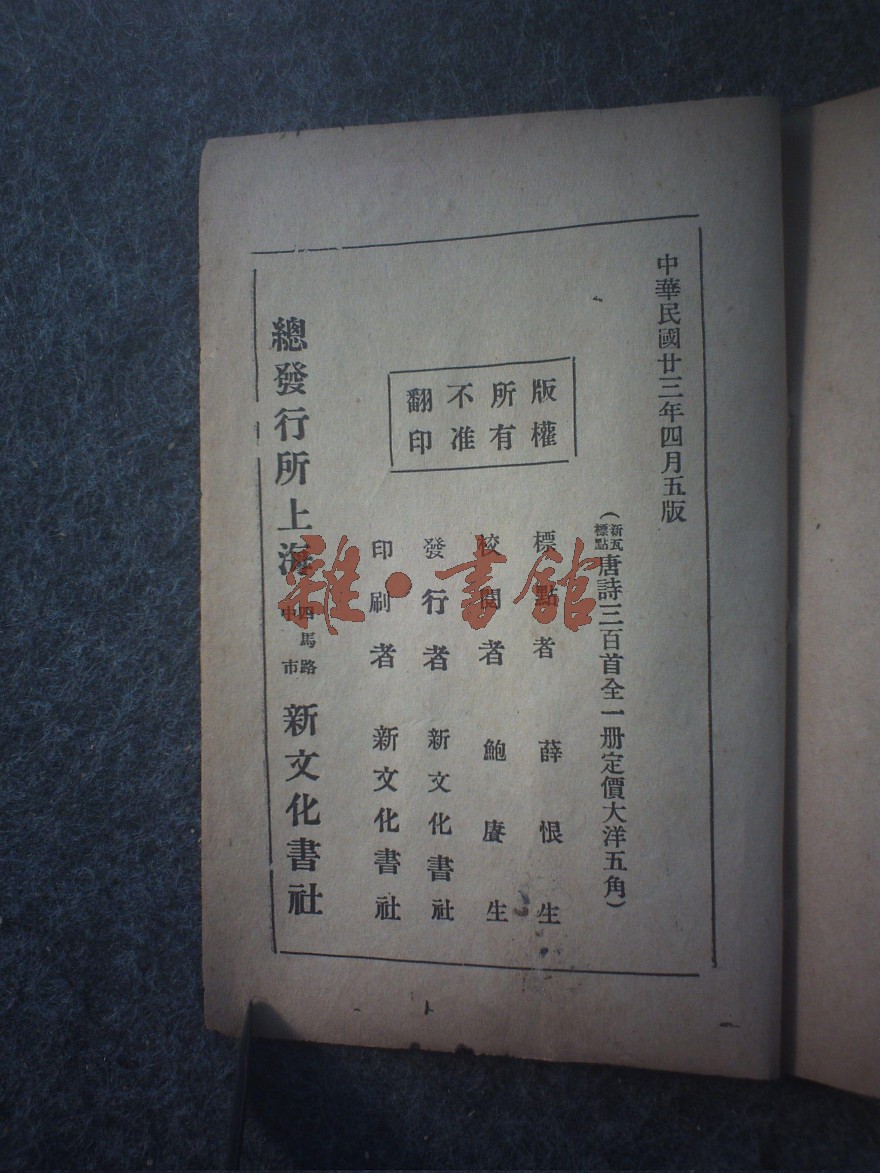 中華民國廿三年四月五版
(新式標點唐詩三百首全一册定價大洋五角)
版權
所有
不准
翻印
標點者 薛恨生
校閱者 鮑賡生
發行者 新文化書社
印刷者 新文化書社
總發行所上海四馬路中市新文化書社
雜·書館